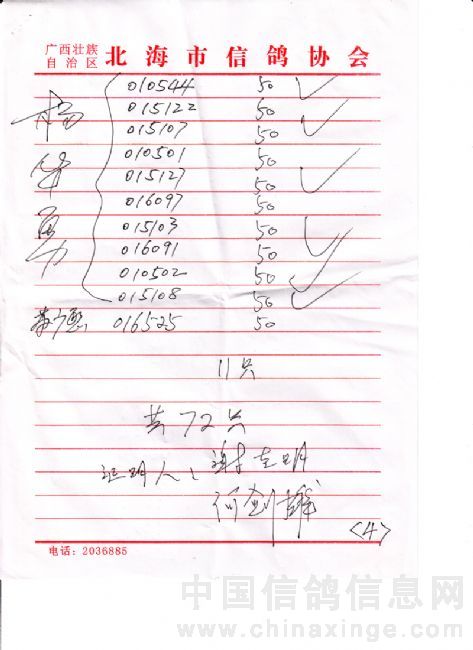 广西壮族
自治区
北海市信鸽协会
010544 50
015122 50
015107 50
010501 50
015127 50
016097 50
015103 50
016091 50
010502 50
015108 50
016525 50
杨
勇
11只
共72只
证明人：谢志明
何剑
<4>
电话：2036885
中国信鸽信息网
www.chinaxinge.com